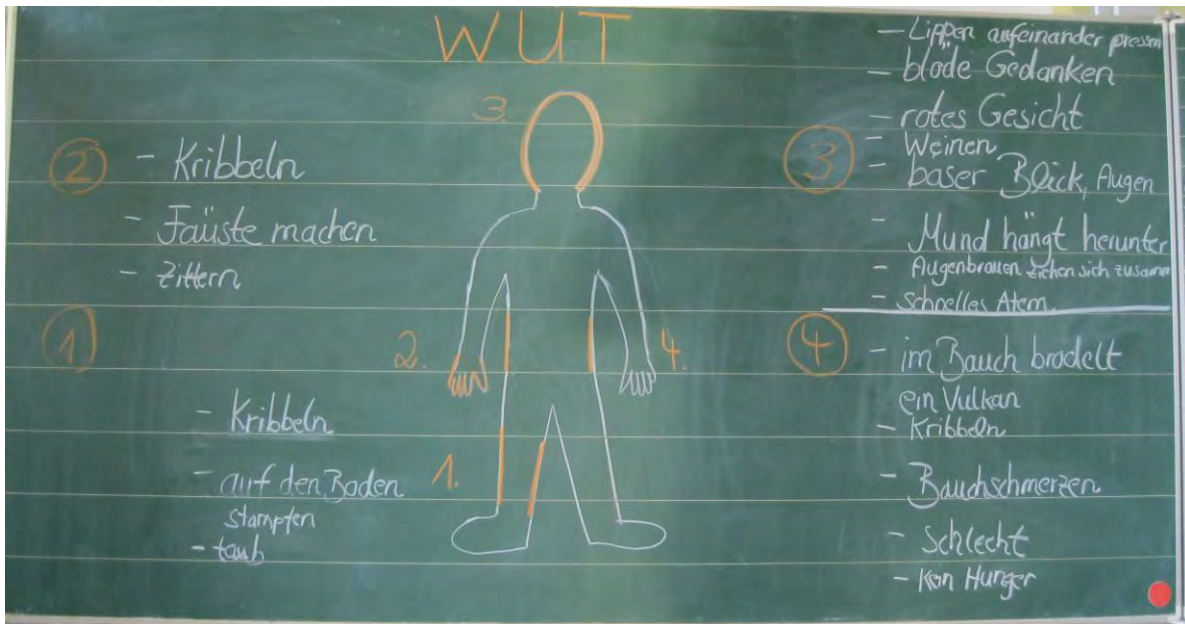 WUT
3.
②
- Kribbeln
- Faüste machen
- Zittern
①
- Kribbeln
- auf den Boden
stampfen
- taub
2.
4.
1.
- Lippen aufeinander pressen
- blöde Gedanken
- rotes Gesicht
③
- Weinen
- böser Blick, Augen
- Mund hängt herunter
- Augenbrauen ziehen sich zusamm
- Schnelles Atem
④
- im Bauch brodelt
ein Vulkan
- Kribbeln
- Bauchschmerzen
- Schlecht
- Kein Hunger